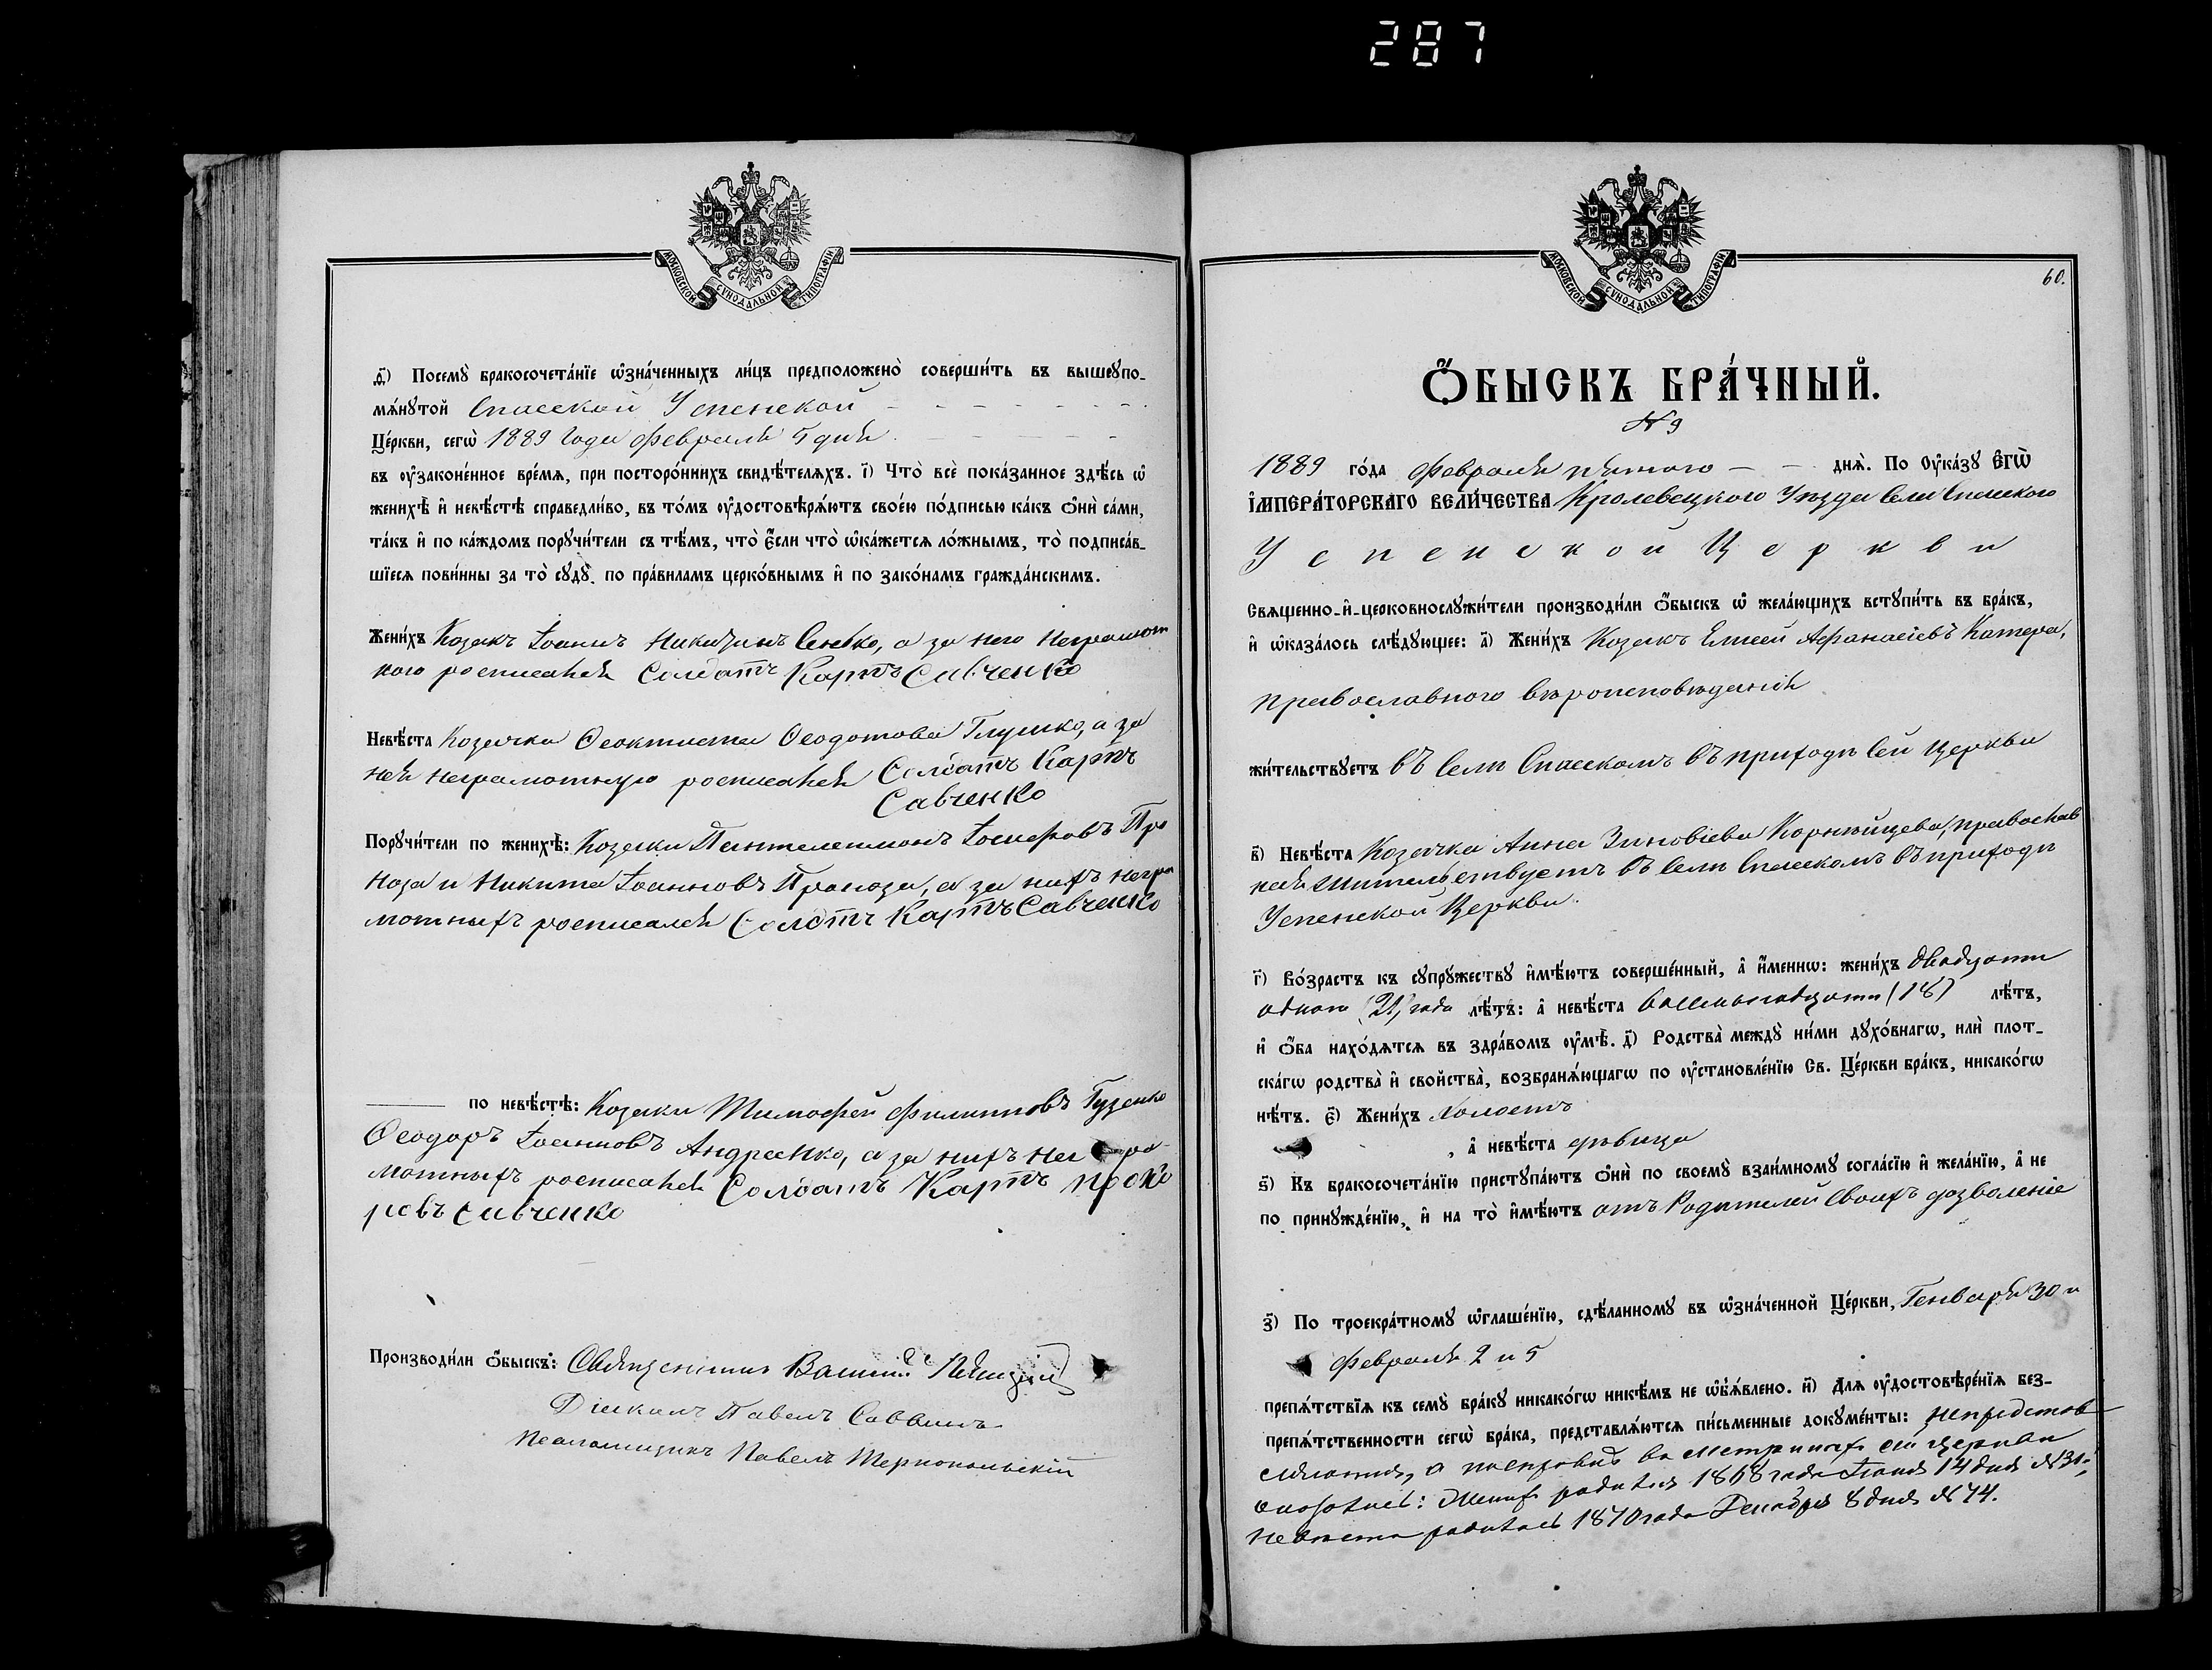 287
МОСКОВСКОЙ СѴНОДАЛЬНОЙ ТИПОГРАФІИ
ѳ҃) Посемꙋ̀ бракосочета́нїе ѡ҆зна́ченныхъ ли́цъ предположено̀ соверши́ть въ вышеꙋпо-
мѧ́нꙋтой Спасской Успенской
Це́ркви, сегѡ̀ 1889 года Февраля 5 дня
въ ᲂу҆законе́нное вре́мѧ, при посторо́ннихъ свидѣ́телѧхъ. і҃) Что̀ всѐ пока́занное здѣ́сь ѡ҆
женихѣ̀ и҆ невѣ́стѣ справедли́во, въ то́мъ ᲂу҆достовѣрѧ́ютъ свое́ю по́дписью ка́къ ѻ҆нѝ са́ми,
та́къ и҆ по ка́ждомъ порꙋчи́тели съ тѣ́мъ, что̀ є҆́сли что̀ ѡ҆ка́жетсѧ ло́жнымъ, то̀ подписа́в-
шїесѧ пови́нны за то̀ сꙋдꙋ̀ по пра́виламъ церко́внымъ и҆ по зако́намъ гражда́нскимъ.
Жени́хъ Козакъ Іоаннъ Никитинъ Сенько, а за него неграмот
ного росписался Солдатъ Карпъ Савченко
Невѣ́ста Козачка Феоктиста Феодотова Глушко, а за
нея неграмотную росписался Солдатъ Карпъ
Савченко
Порꙋчи́тели по женихѣ̀: Козаки Пантелеимонъ Іосифовъ Про
ноза и Никита Іоанновъ Проноза, а за нихъ негра
мотныхъ росписался Солдатъ Карпъ Савченко
по невѣ́стѣ: Козаки Тимофей Филипповъ Гузенко
Феодоръ Іоанновъ Андреенко, а за нихъ негра
мотныхъ росписался Солдатъ Карпъ Проко
ровъ Савченко
Производи́ли ѻ҆́быскъ: Священникъ
Діаконъ Павелъ Саввинъ
Псаломщикъ Павелъ Тернопольскій
МОСКОВСКОЙ СѴНОДАЛЬНОЙ ТИПОГРАФІИ
60.
Ѻ҆́БЫСКЪ БРА́ЧНЫЙ.
№ 9
1889 го́да Февраля пятого днѧ̀. По Оу҆ка́зꙋ Є҆гѡ̀
І҆МПЕРА́ТОРСКАГО ВЕЛИ́ЧЕСТВА Кролевецкого Уезда Села Спасского
Успенской Церкви
Свѧще́нно-и҆-церковнослꙋжи́тели производи́ли ѻ҆́быскъ ѡ҆ жела́ющихъ встꙋпи́ть въ бра́къ,
и҆ ѡ҆каза́лось слѣ́дꙋющее: а҃) Жени́хъ Козакъ Елисей Афанасіевъ Катера,
православного вѣроисповѣданія
жи́тельствꙋетъ въ Селѣ Спасскомъ въ приходѣ Сей Церкви
в҃) Невѣ́ста Козачка Анна Зиновіева Корнѣйцева, православ
ная жительствуетъ въ Селѣ Спасскомъ въ приходѣ
Успенской Церкви.
г҃) Во́зрастъ къ сꙋпрꙋ́жествꙋ и҆мѣ́ютъ соверше́нный, а҆ и҆́меннѡ: жени́хъ двадцати
одного (21) года лѣ́тъ: а҆ невѣ́ста восемнадцати (18) лѣ́тъ,
и҆ ѻ҆́ба нахо́дѧтсѧ въ здра́вомъ ᲂу҆мѣ̀. д҃) Родства̀ междꙋ̀ ни́ми дꙋхо́внагѡ, илѝ плот-
ска́гѡ родства̀ и҆ свойства̀, возбранѧ́ющагѡ по ᲂу҆становле́нїю Св. Це́ркви бра́къ, никако́гѡ
нѣ́тъ. є҃) Жени́хъ холостъ
, а҆ невѣ́ста дѣвица
ѕ҃) Къ бракосочета́нїю пристꙋпа́ютъ ѻ҆нѝ по своемꙋ̀ взаи́мномꙋ согла́сїю и҆ жела́нїю, а҆ не
по принꙋжде́нїю, и҆ на то̀ и҆мѣ́ютъ отъ Родителей Своихъ дозволеніе
з҃) По троекра́тномꙋ ѡ҆глаше́нїю, сдѣ́ланномꙋ въ ѡ҆зна́ченной Це́ркви, Генваря 30 и
Февраля 2 и 5
препѧ́тствїѧ къ семꙋ̀ бра́кꙋ никако́гѡ никѣ́мъ не ѡ҆б̾ѧ́влено. и҃) Для ᲂу҆достовѣре́нїѧ без-
препѧ́тственности сегѡ̀ бра́ка, представлѧ́ютсѧ пи́сьменные докꙋме́нты: непредстав
лялотся, а по справкѣ въ метрикахъ сей церкви
оказалось: Женихъ родился 1868 года Іюня 14 дня №31,
Невѣста родилась 1870 года Декабря 8 дня №74.